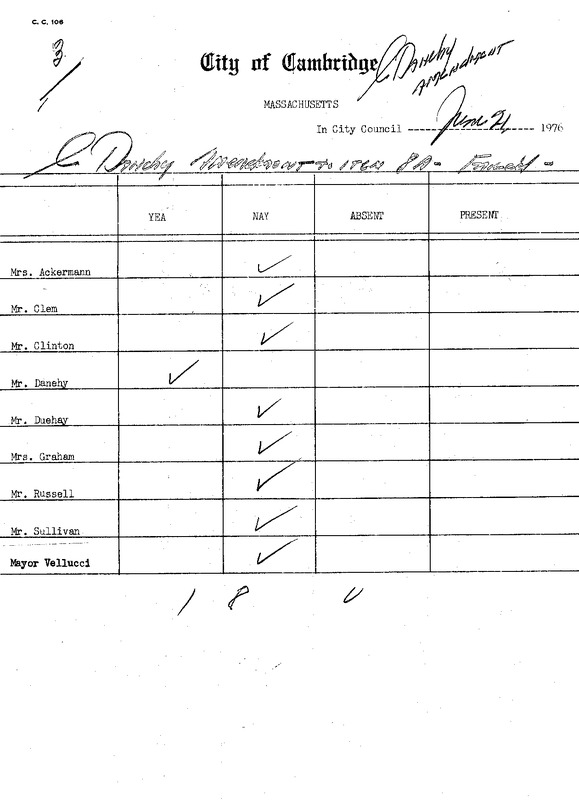 C. C. 106
3
1
City of Cambridge
C Danehy
Amendment
MASSACHUSETTS
In City Council June 21, 1976
C Danehy Amendment to item 8A - Failed -
YEA NAY ABSENT PRESENT
Mrs. Ackermann ✓
Mr. Clem ✓
Mr. Clinton ✓
Mr. Danehy ✓
Mr. Duehay ✓
Mrs. Graham ✓
Mr. Russell ✓
Mr. Sullivan ✓
Mayor Vellucci ✓
1 8 0